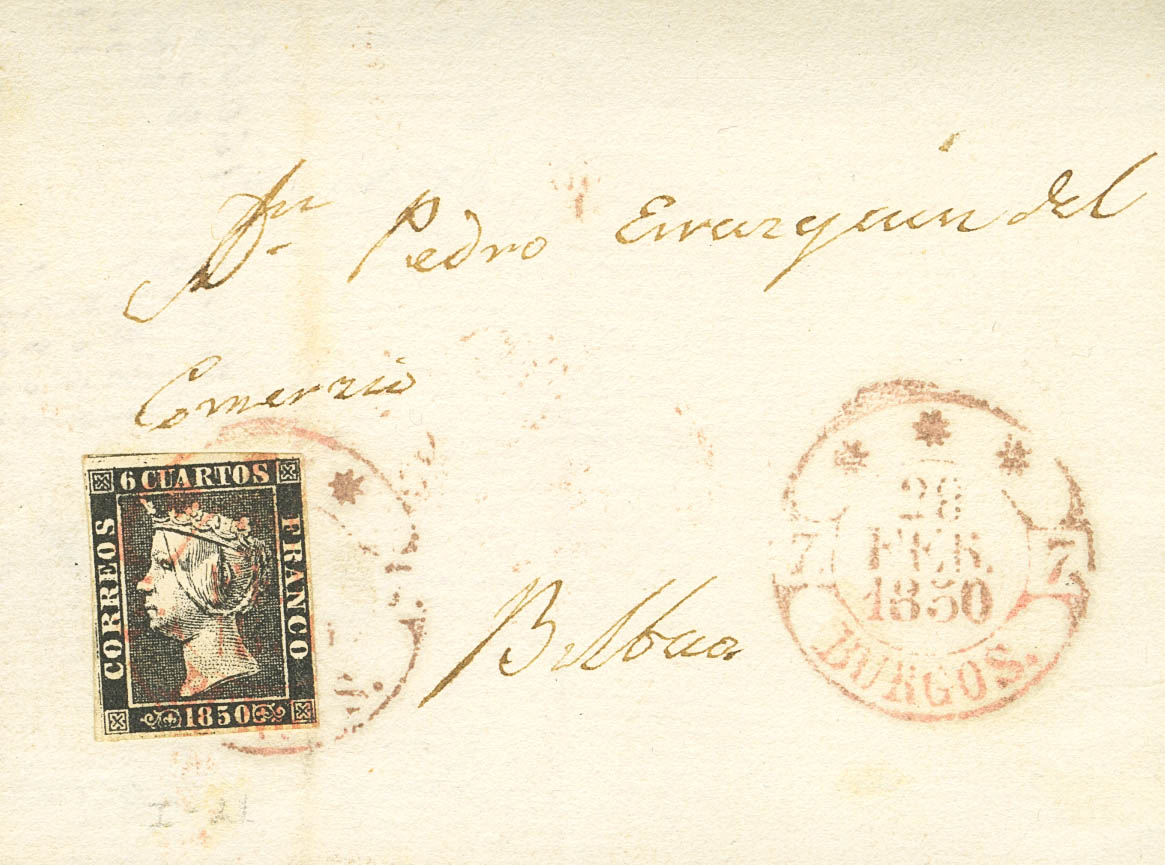 Dn Pedro Errazquin del
Comerzio
6 CUARTOS
CORREOS
FRANCO
1850
Bilbao
28
FEB.
1850
7 7
BURGOS.
I-21